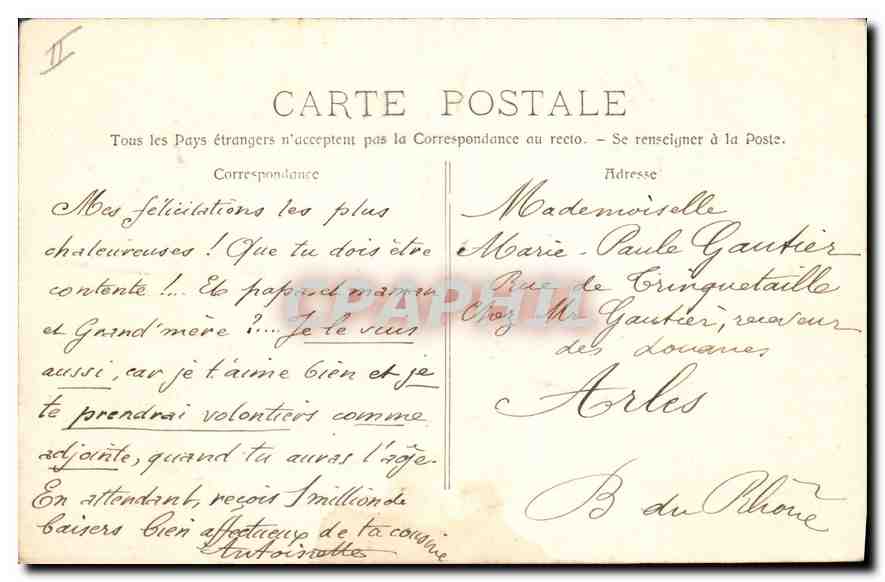 II
CARTE POSTALE
Tous les Pays étrangers n'acceptent pas la Correspondance au recto. – Se renseigner à la Poste.
Correspondance
Mes félicitations les plus
chaleureuses ! Que tu dois être
contente !... Et papa et maman
et Grand'mère ?.... Je le suis
aussi, car je t'aime bien et je
te prendrai volontiers comme
adjointe, quand tu auras l'âge.
En attendant, reçois 1 million de
baisers bien affectueux de ta cousine
Antoinette
Adresse
Mademoiselle
Marie-Paule Gautier
Rue de Trinquetaille
Chez Mr Gautier, receveur
des douanes
Arles
B du Rhône
CPAPHIL